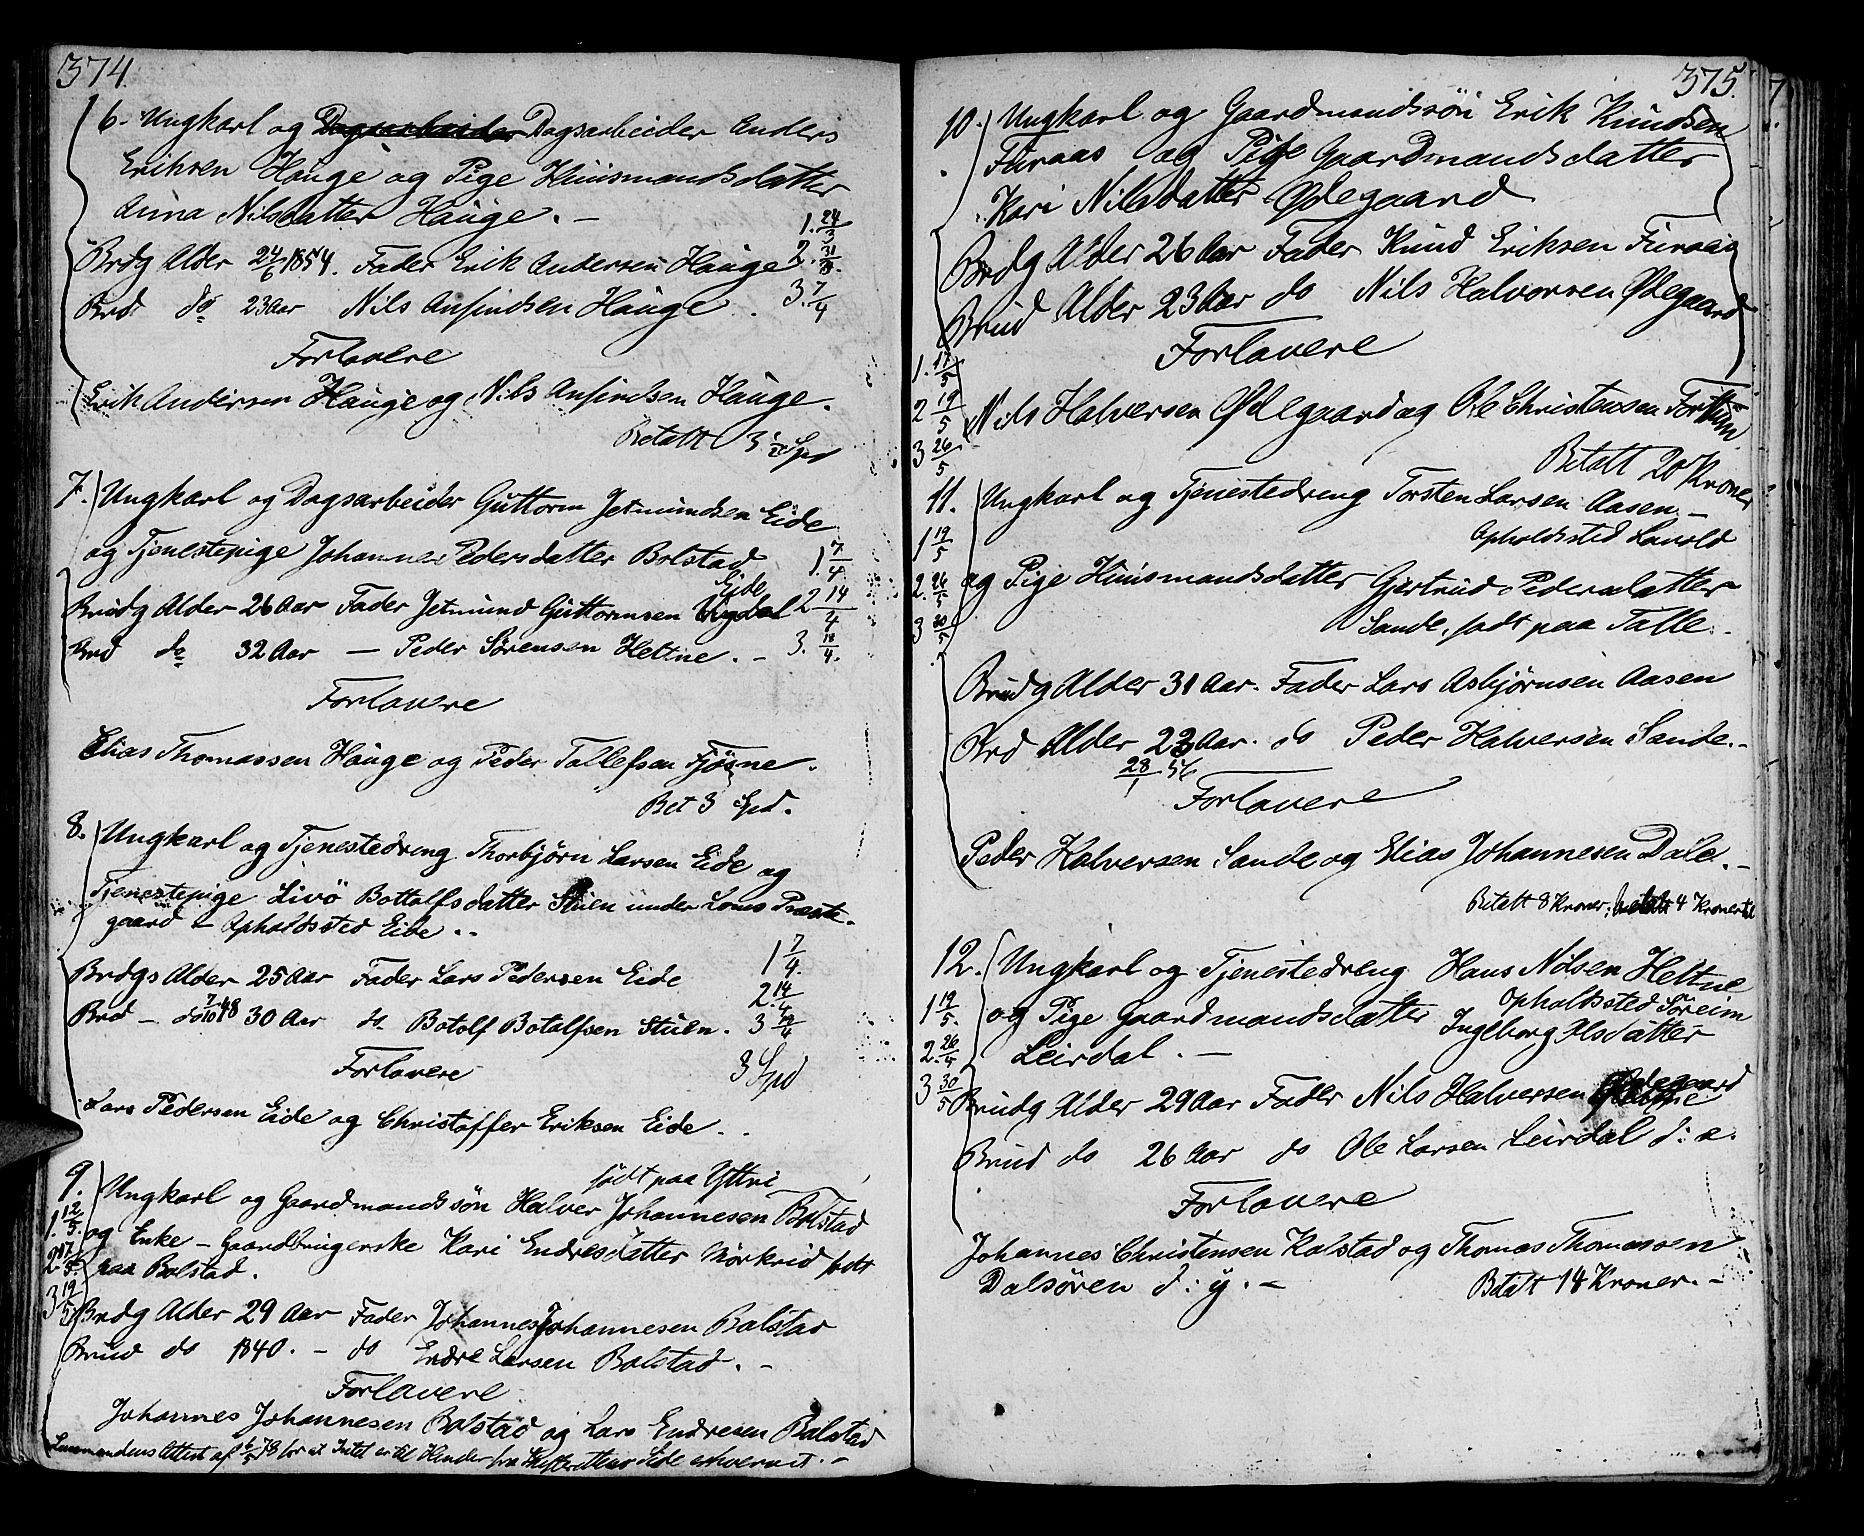 374
6. Ungkarl og Dagsarbeider Dagsarbeider Enders
Eriksen Hauge og Pige Huusmandsdatter
Anna Nilsdatter Hauge. –
1. 24/3
Brdg Alder 24/6 1854. Fader Erik Andersen Hauge 2. 31/3.
Brd do 23 Aar Nils Ansindsen Hauge. 3. 7/4
Forlovere
Erik Andersen Hauge og Nils Ansindsen Hauge.
Betalt 3 Spd
7. Ungkarl og Dagsarbeider Guttorm Jetmundsen Eide
og Tjenestepige Johanne Pedersdatter Bolstad 1. 7/4
Eide
Brudg Alder 26 Aar Fader Jetmund Guttormsen 2 14/4
Brd do 32 Aar – Peder Sørensen Heltne. – 3. 19/4.
Forlovere
Elias Thomassen Hauge og Peder Tollefsen Fjøsne.
Bet 3 Spd.
8. Ungkarl og Tjenestedreng Thorbjörn Larsen Eide og
Tjenestepige Livö Bottolfsdatter Stuen under Loms Præste-
gaard – Opholdssted Eide..
Brdgs Alder 25 Aar Fader Lars Pedersen Eide 1 7/4.
2. 14/4
Brd – do 7/10 48 30 Aar do Botolf Botolfsen Stuen. 3 19/4
Forlovere 3 Spd
Lars Pedersen Eide og Christoffer Eriksen Eide.
født paa Yttri
9. Ungkarl og Gaardmandssön Halver Johannesen Bolstad
1. 12/5. og Enke – Gaardbrugerske Kari Endresdatter Mörkrid født
2 17/5. paa Bolstad.
3 19/5 Brdg Alder 29 Aar Fader Johannes Johannesen Bolstad
Brud do 1840. – do Endre Larsen Bolstad. –
Forlovere
Johannes Johannesen Bolstad og Lars Endresen Bolstad
Lensmandens Attest af 6/5 78 for at Intet er til Hinder fra Skifterettens Side erhvervet. –
375.
10. Ungkarl og Gaardmandssön Erik Knudsen
Furaas og Pige Gaardmandsdatter
Kari Nilsdatter Ødegaard
Brdg Alder 26 Aar Fader Knud Eriksen Furaas
Brud Alder 23 Aar do Nils Halvorsen Ødegaard
Forlovere
1. 17/5
2 19/5 Nils Halversen Ødegaard og Ole Christensen Fortun
3 26/5
Betalt 20 Kroner
11. Ungkarl og Tjenestedreng Torsten Larsen Aasen –
1 19/5 Opholdssted Lavold
2. 26/5 og Pige Huusmandsdatter Gjertrud Pedersdatter
3 30/5 Sande, født paa Talle.
Brudg Alder 31 Aar. Fader Lars Asbjørnsen Aasen
Brd Alder 22 Aar. do Peder Halversen Sande. –
28/1 56
Forlovere
Peder Halversen Sande og Elias Johannesen Dale. –
Betalt 8 Kroner; betalt 4 Kroner til
12. Ungkarl og Tjenestedreng Hans Nilsen Heltne
Opholdssted Söreim
1 19/5. og Pige Gaardmandsdatter Ingeborg Olsdatter
2. 26/5 Leirdal. –
3 30/5 Brudg Alder 29 Aar Fader Nils Halversen Ødegaard
Brud do 26 Aar do Ole Larsen Leirdal d: e.
Forlovere
Johannes Christensen Kalstad og Thomas Thomassen
Dalsören d: y. – Betalt 14 Kroner. –